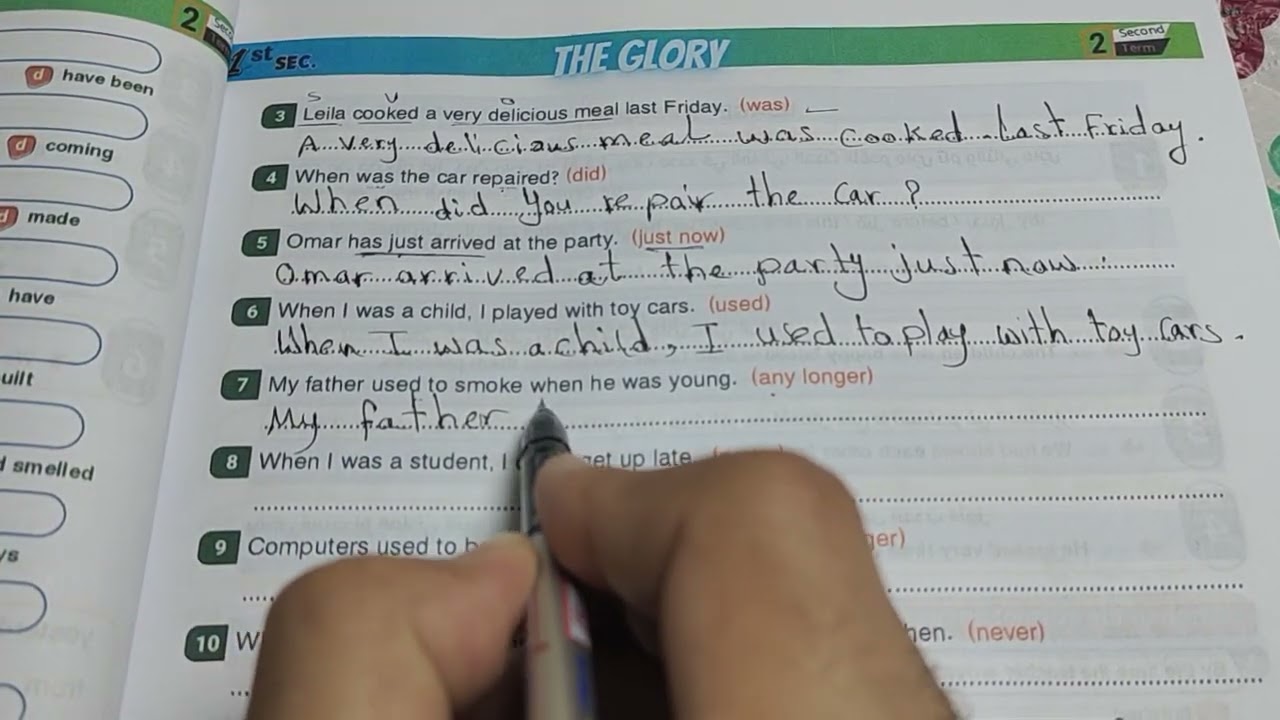 d have been
d coming
d made
have
uilt
d smelled
ys
2 Seco
Term
1st SEC.
THE GLORY
2 Second Term
S V O
3 Leila cooked a very delicious meal last Friday. (was)
A very delicious meal was cooked last Friday.
4 When was the car repaired? (did)
When did you repair the car?
5 Omar has just arrived at the party. (just now)
Omar arrived at the party just now.
6 When I was a child, I played with toy cars. (used)
When I was a child, I used to play with toy cars.
7 My father used to smoke when he was young. (any longer)
My father
8 When I was a student, I get up late.
9 Computers used to b ger)
10 W hen. (never)